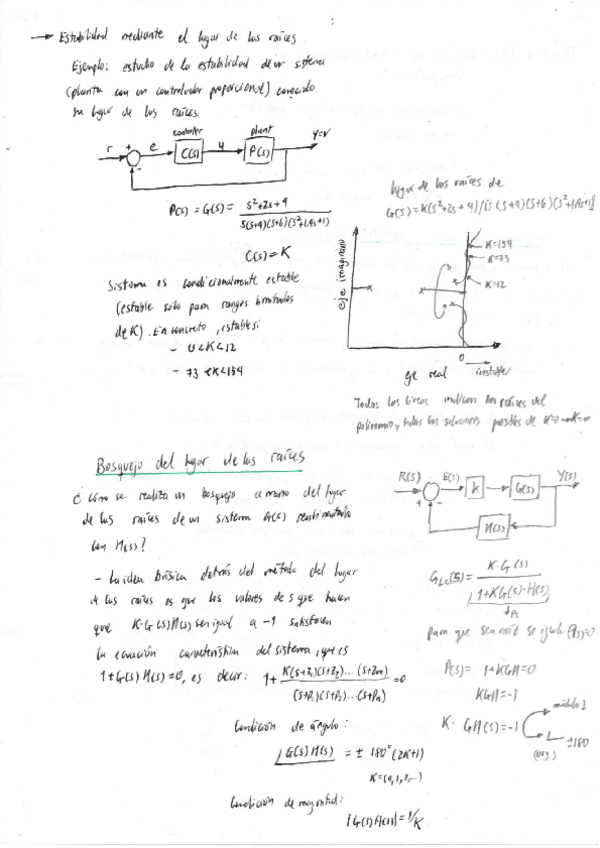 → Estabilidad mediante el lugar de las raíces.
Ejemplo: estudio de la estabilidad de un sistema
(planta con un controlador proporcional) conocido
su lugar de las raíces.
controller
plant
r
+
-
e
C(s)
u
P(s)
P(s) = G(s) = s²+2s+4 / s(s+4)(s+6)(s²+1,4s+1)
C(s) = K
Sistema es condicionalmente estable
(estable solo para rangos limitados
de K). En concreto, estable si
- 0<K<12
- 73<K<154
lugar de las raíces de
G(s) = K(s²+2s+4)/[s(s+4)(s+6)(s²+1,4s+1)]
eje imaginario
K=154
K=73
K=12
0
eje real
inestable
Todas las líneas indican las raíces del
polinomio, todas las soluciones posibles de K=0 → K=∞
Bosquejo del lugar de las raíces
¿Cómo se realiza un bosquejo a mano del lugar
de las raíces de un sistema G(s) realimentado
con H(s)?
R(s)
+
-
E(s)
K
G(s)
Y(s)
H(s)
- La idea básica detrás del método del lugar
de las raíces es que los valores de s que hacen
que K·G(s)H(s) sea igual a -1 satisfacen
la ecuación característica del sistema, que es
1+G(s)H(s)=0, es decir: 1+ K(s+z₁)(s+z₂)...(s+zm) / (s+p₁)(s+p₂)...(s+pn) =0
G_LC(s) = K·G(s) / 1+KG(s)·H(s)
para que sea raíz se iguala P(s)=0
P(s) = 1+KGH=0
KGH=-1
K·GH(s)=-1
módulo 1
±180
(arg)
Condición de ángulo:
∠G(s)H(s) = ±180°(2K+1)
K=(0,1,2,...)
Condición de magnitud:
|G(s)H(s)|=1/K